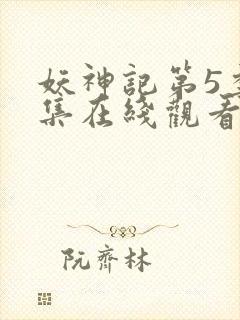 妖神記第5季
集在綫觀看
阮齊林